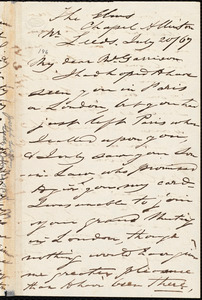 The Elms
Chapel Allerton
Leeds, July 20/67
My dear Mr Garrison
I had hoped to have
seen you in Paris
or London, but you had
just left Paris when
I called upon you
& I only saw your Son
in Law, who promised
to give you my card
I was unable to join
your grand Meeting
in London, though
nothing would have given
me greater pleasure
than to have been there,